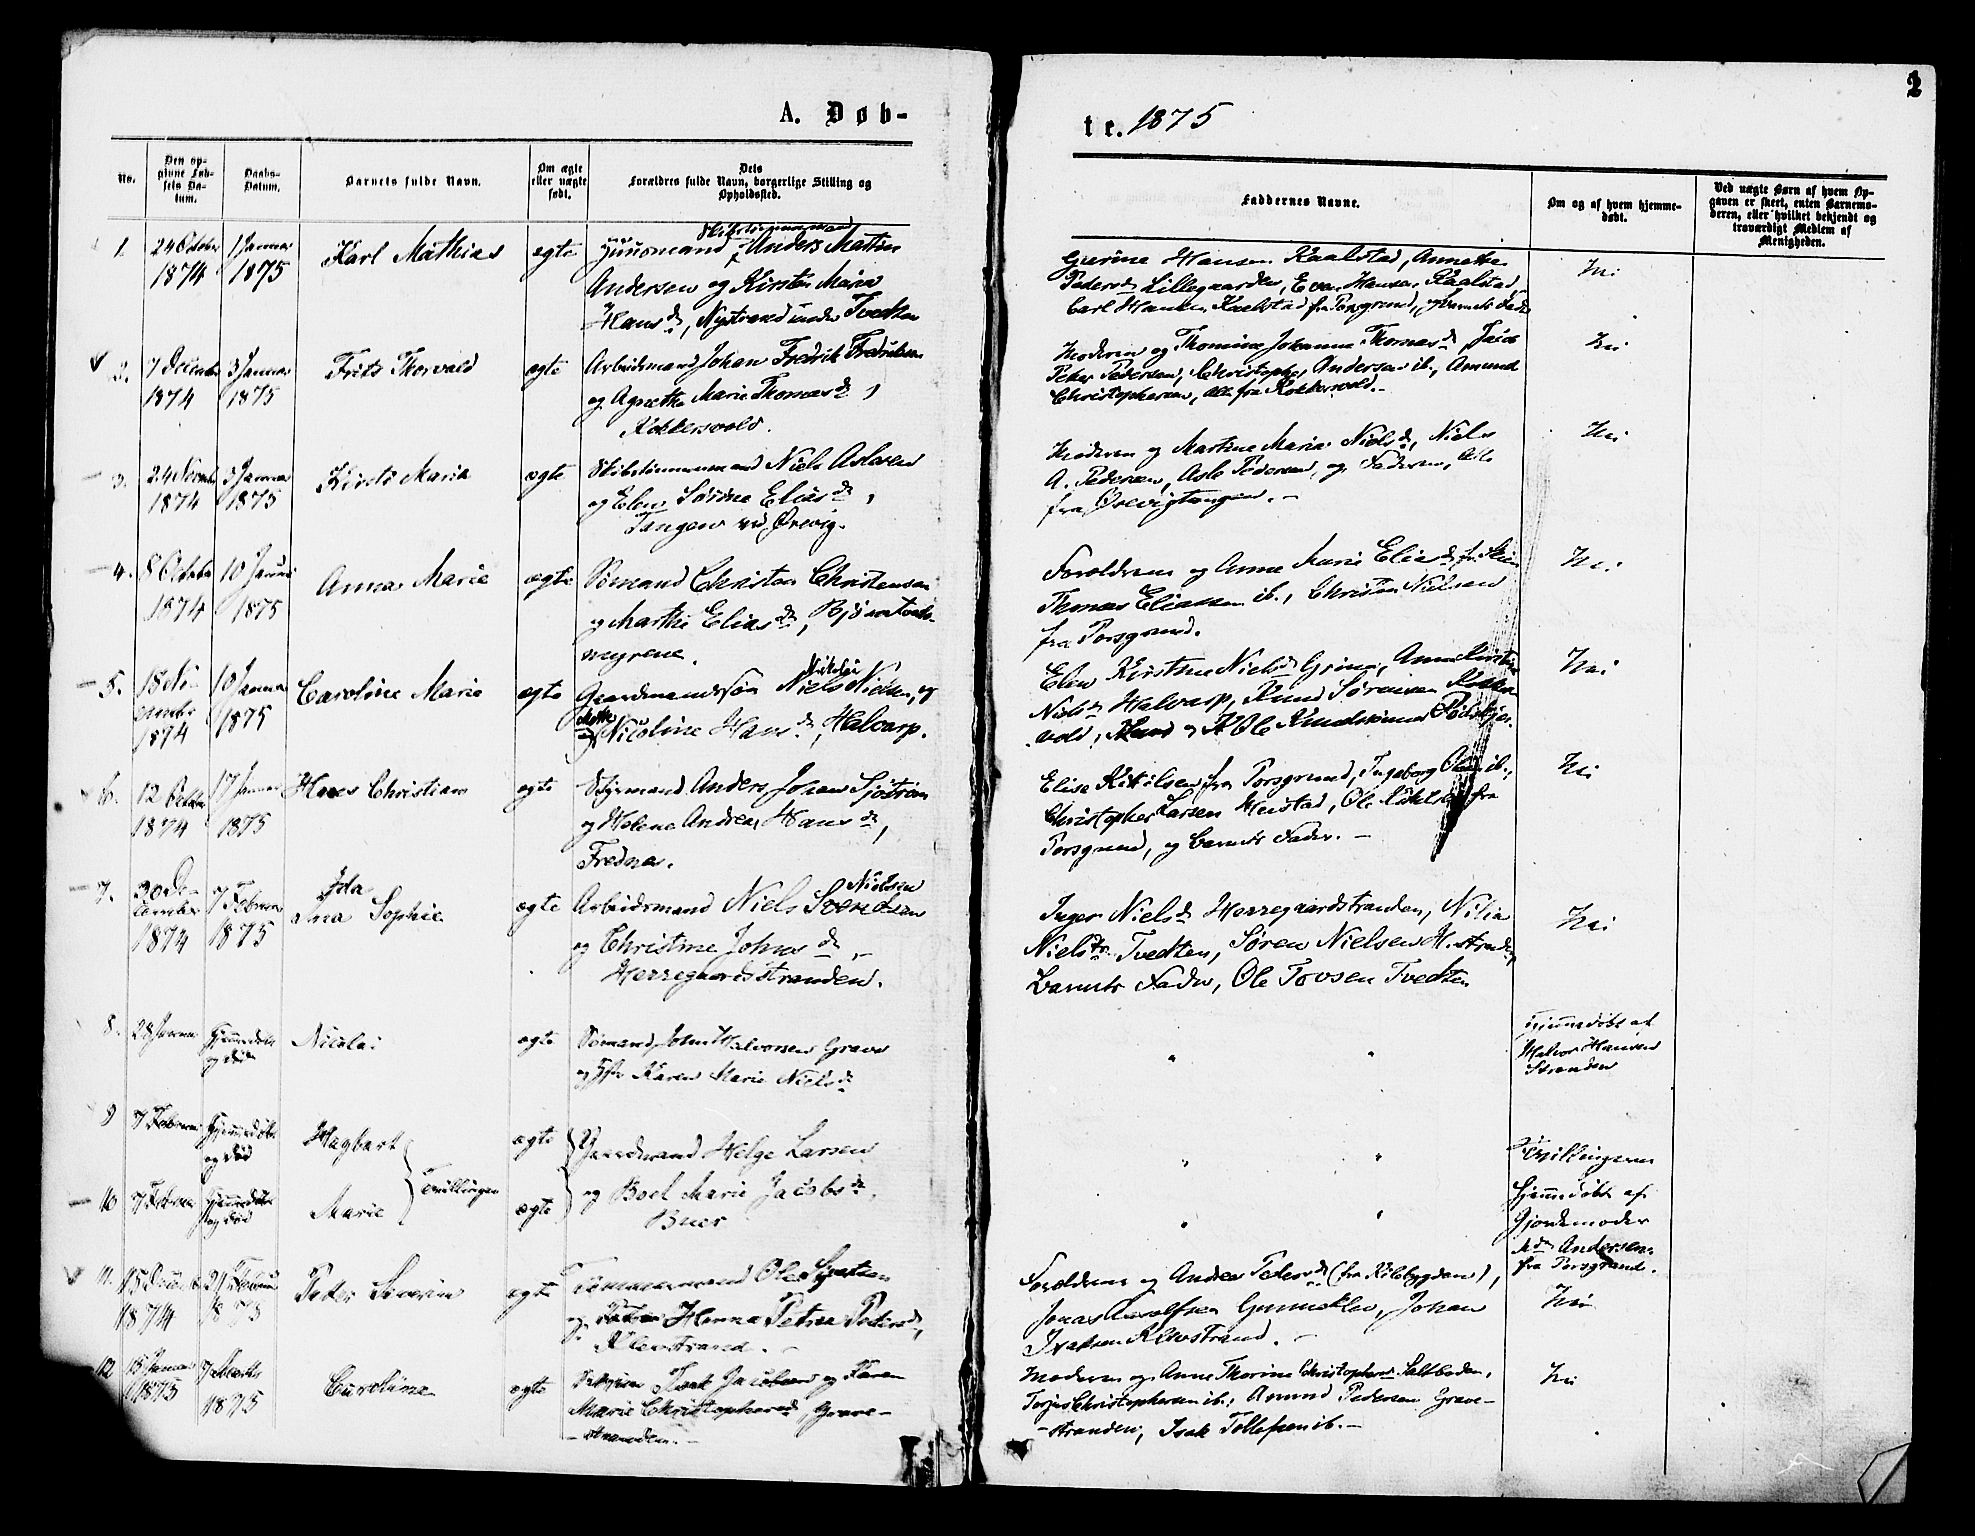 2
A. Døb-
te. 1875
No.
Den op-
givne Fød-
sels Da-
tum.
Daabs-
Datum.
Barnets fulde Navn.
Om ægte
eller uægte
født.
Dets
Forældres fulde Navn, borgerlige Stilling og
Opholdssted.
Faddernes Navne.
Om og af hvem hjemme-
døbt.
Ved uægte Børn af hvem Op-
gaven er skeet, enten Barnemo-
deren, eller hvilket bekjendt og
troværdigt Medlem af
Menigheden.
1.
24 October
1874
1 Januar
1875
Karl Mathias
ægte
Skibstimmermand
Huusmand Anders Martin
Andersen og Kirsten Maria
Hansd, Nystrand under Tvedten
Hansen Raalstad, Annethe
Pedersd Lillegaarden, Even Hansen Raalstad,
Carl Hansen Raalstad fra Porsgrund, og Barnets Fader
Nei
2.
7 December
1874
3 Januar
1875
Frits Thorvald
ægte
Arbeidsmand Johan Fredrik Fredriksen
og Agnethe Marie Thomasd,
Kokkersvold.
Moderen og Thomine Johanne Thomasd,
Peter Pedersen, Christopher Andersen ib., Amund
Christophersen, alle fra Kokkersvold.-
Nei
3.
24 November
1874
3 Januar
1875
Maria
ægte
Skibstimmermand Niels Aslesen
og Elen Sørine Eliasd,
Tangen ved Ørevig.
Moderen og Martine Maria Nielsd, Niels
A. Pedersen, Asle Pedersen, og Faderen, alle
fra Ørevigtangen.-
Nei
4.
8 October
1874
10 Januar
1875
Anna Marie
ægte
Sømand Christen Christensen
og Marthe Eliasd,
myrene.
Forældrene og Anne Marie Eliasd fra Skien
Thomas Eliassen ib., Christen Nielsen
fra Porsgrund.
Nei
5.
18 No-
vember
1874
10 Januar
1875
Caroline Marie
ægte
Nikolai
Gaardmandssøn Niels Nielsen, og
Nicoline Hansd, Halvarp.
Elen Kirstine Nielsd Grina, Anne Kirstine
Nielsd Halvarp, Knud Sørensen Kokkers-
vold, og Ole Knudsen
Nei
6.
12 October
1874
17 Januar
1875
Hans Christian
ægte
Styrmand Anders Johan Sjøstrøm
og Helene Andrea Hansd,
Fredna.
Elise Kittilsen fra Porsgrund, Ingeborg Olsen ib.,
Christopher Larsen Heistad, Ole Kittilsen fra
Porsgrund, og Barnets Fader.-
Nei
7.
30 De-
cember
1874
7 Februar
1875
Ida
Sophie
ægte
Nielsen
Arbeidsmand Niels Svendsen
og Christine Johnsd,
Herregaardsstranden.
Inger Nielsd Herregaardstranden,
Nielsdtr Tvedten, Søren Nielsen H.stranden,
Barnets Fader, Ole Tovsen Tvedten
Nei
8.
28 Januar
Hjemmedøbt
og død
Nicolai
ægte
Sømand John Halvorsen Grava
og Hustru Karen Marie Nielsd
" "
Hjemmedøbt af
Halvor Hansen
Stranden
9
7 Februar
Hjemmedøbt
og død
Hagbart
ægte
Gaardmand Helge Larsen
og Boel Marie Jacobsd.
Buer
Tvillinger
" "
Tvillingerne
Hjemmedøbt af
Gjordemoder
Md Andersen
fra Porsgrund.
10
7 Februar
Hjemmedøbt
og død
Marie
ægte
" "
11.
15 December
1874
21 Februar
1875
Peder Severin
ægte
Tømmermand Ole
og Hanna Petrea Pedersd,
Klevstrand.-
Forældrene og Andrea Pedersd (fra Kilebygden),
Jonas Gunneklev, Johan
Isaksen Klevstrand.-
Nei
12
13 Januar
1875
7 Marts
1875
Caroline
ægte
Isak Jacobsen og Karen
Marie Christophersd, Grave-
-stranden.-
Moderen og Anne Thorine Christophersd Saltboden,
Terjer Christophersen ib., Amund Pedersen Grave-
-stranden, Isak Tollefsen ib.-
Nei